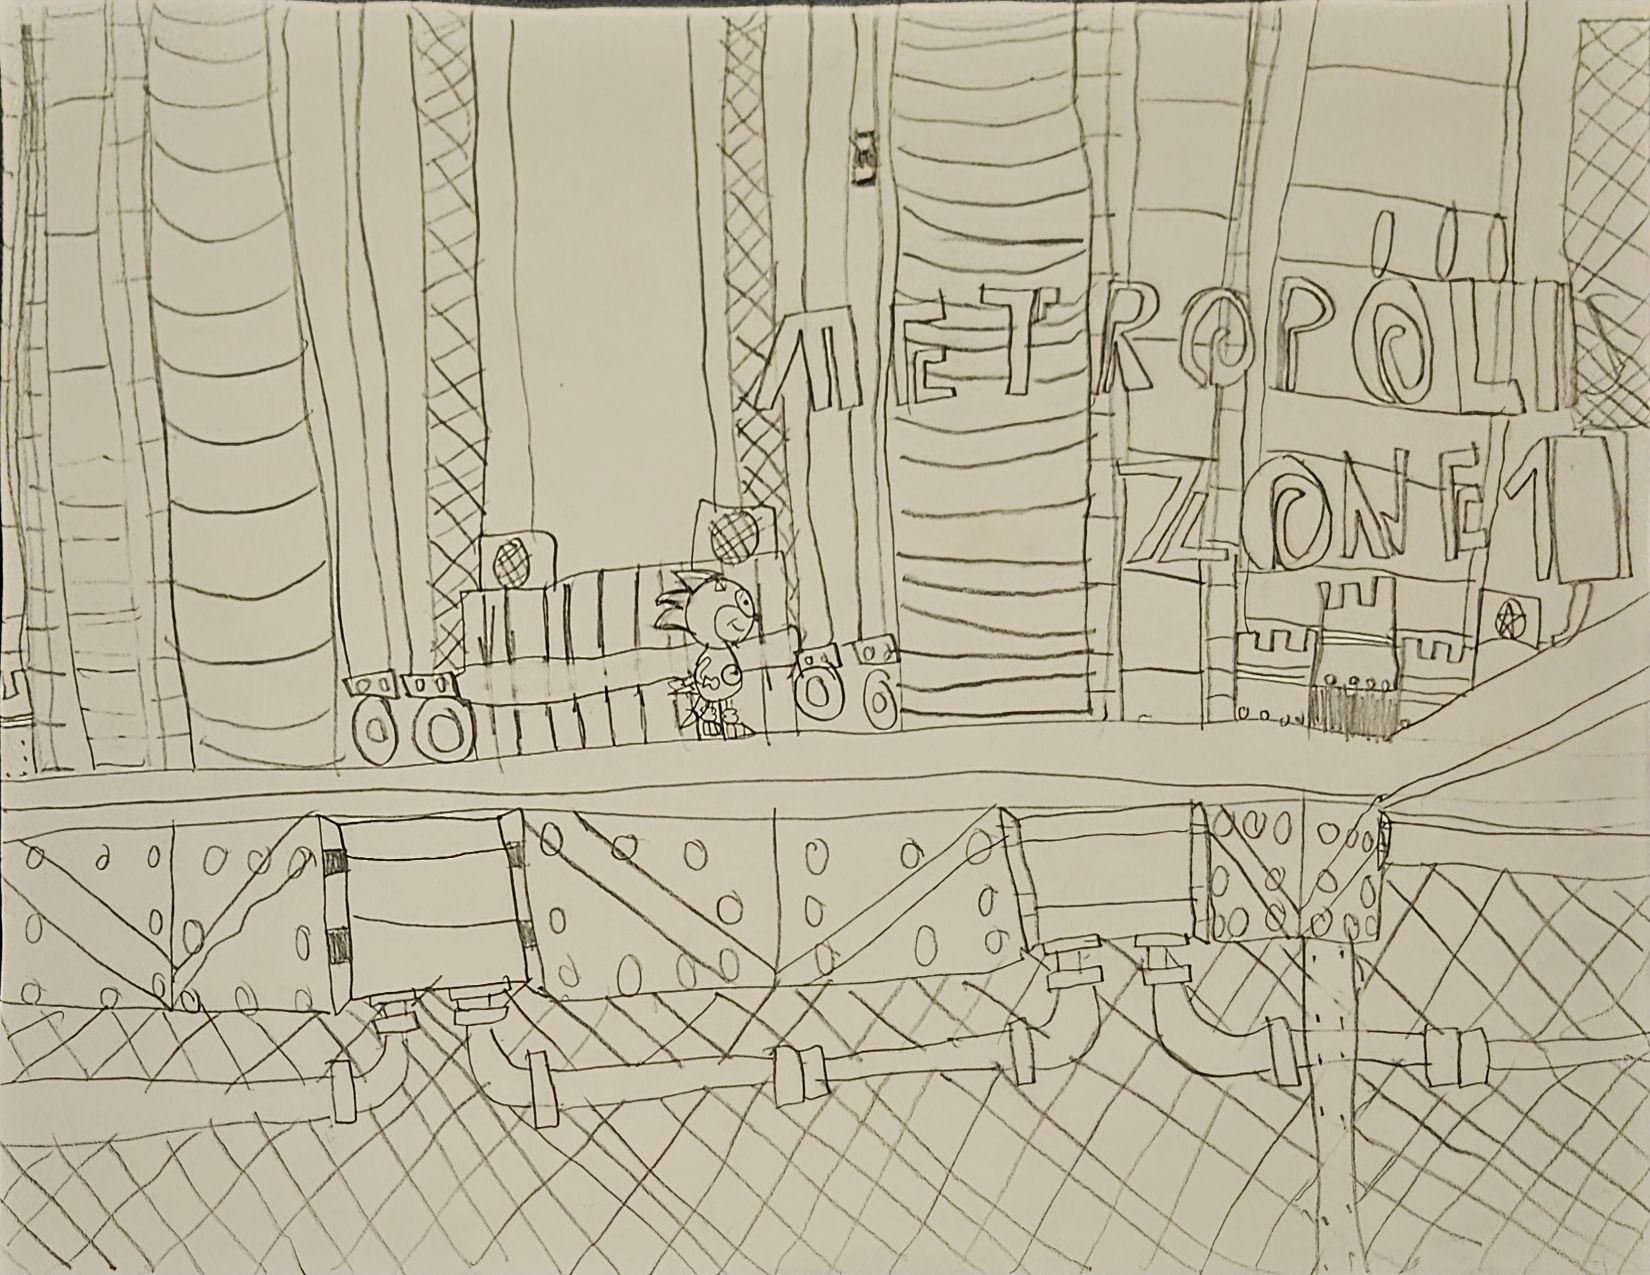 METROPOLIS
ZONE 1